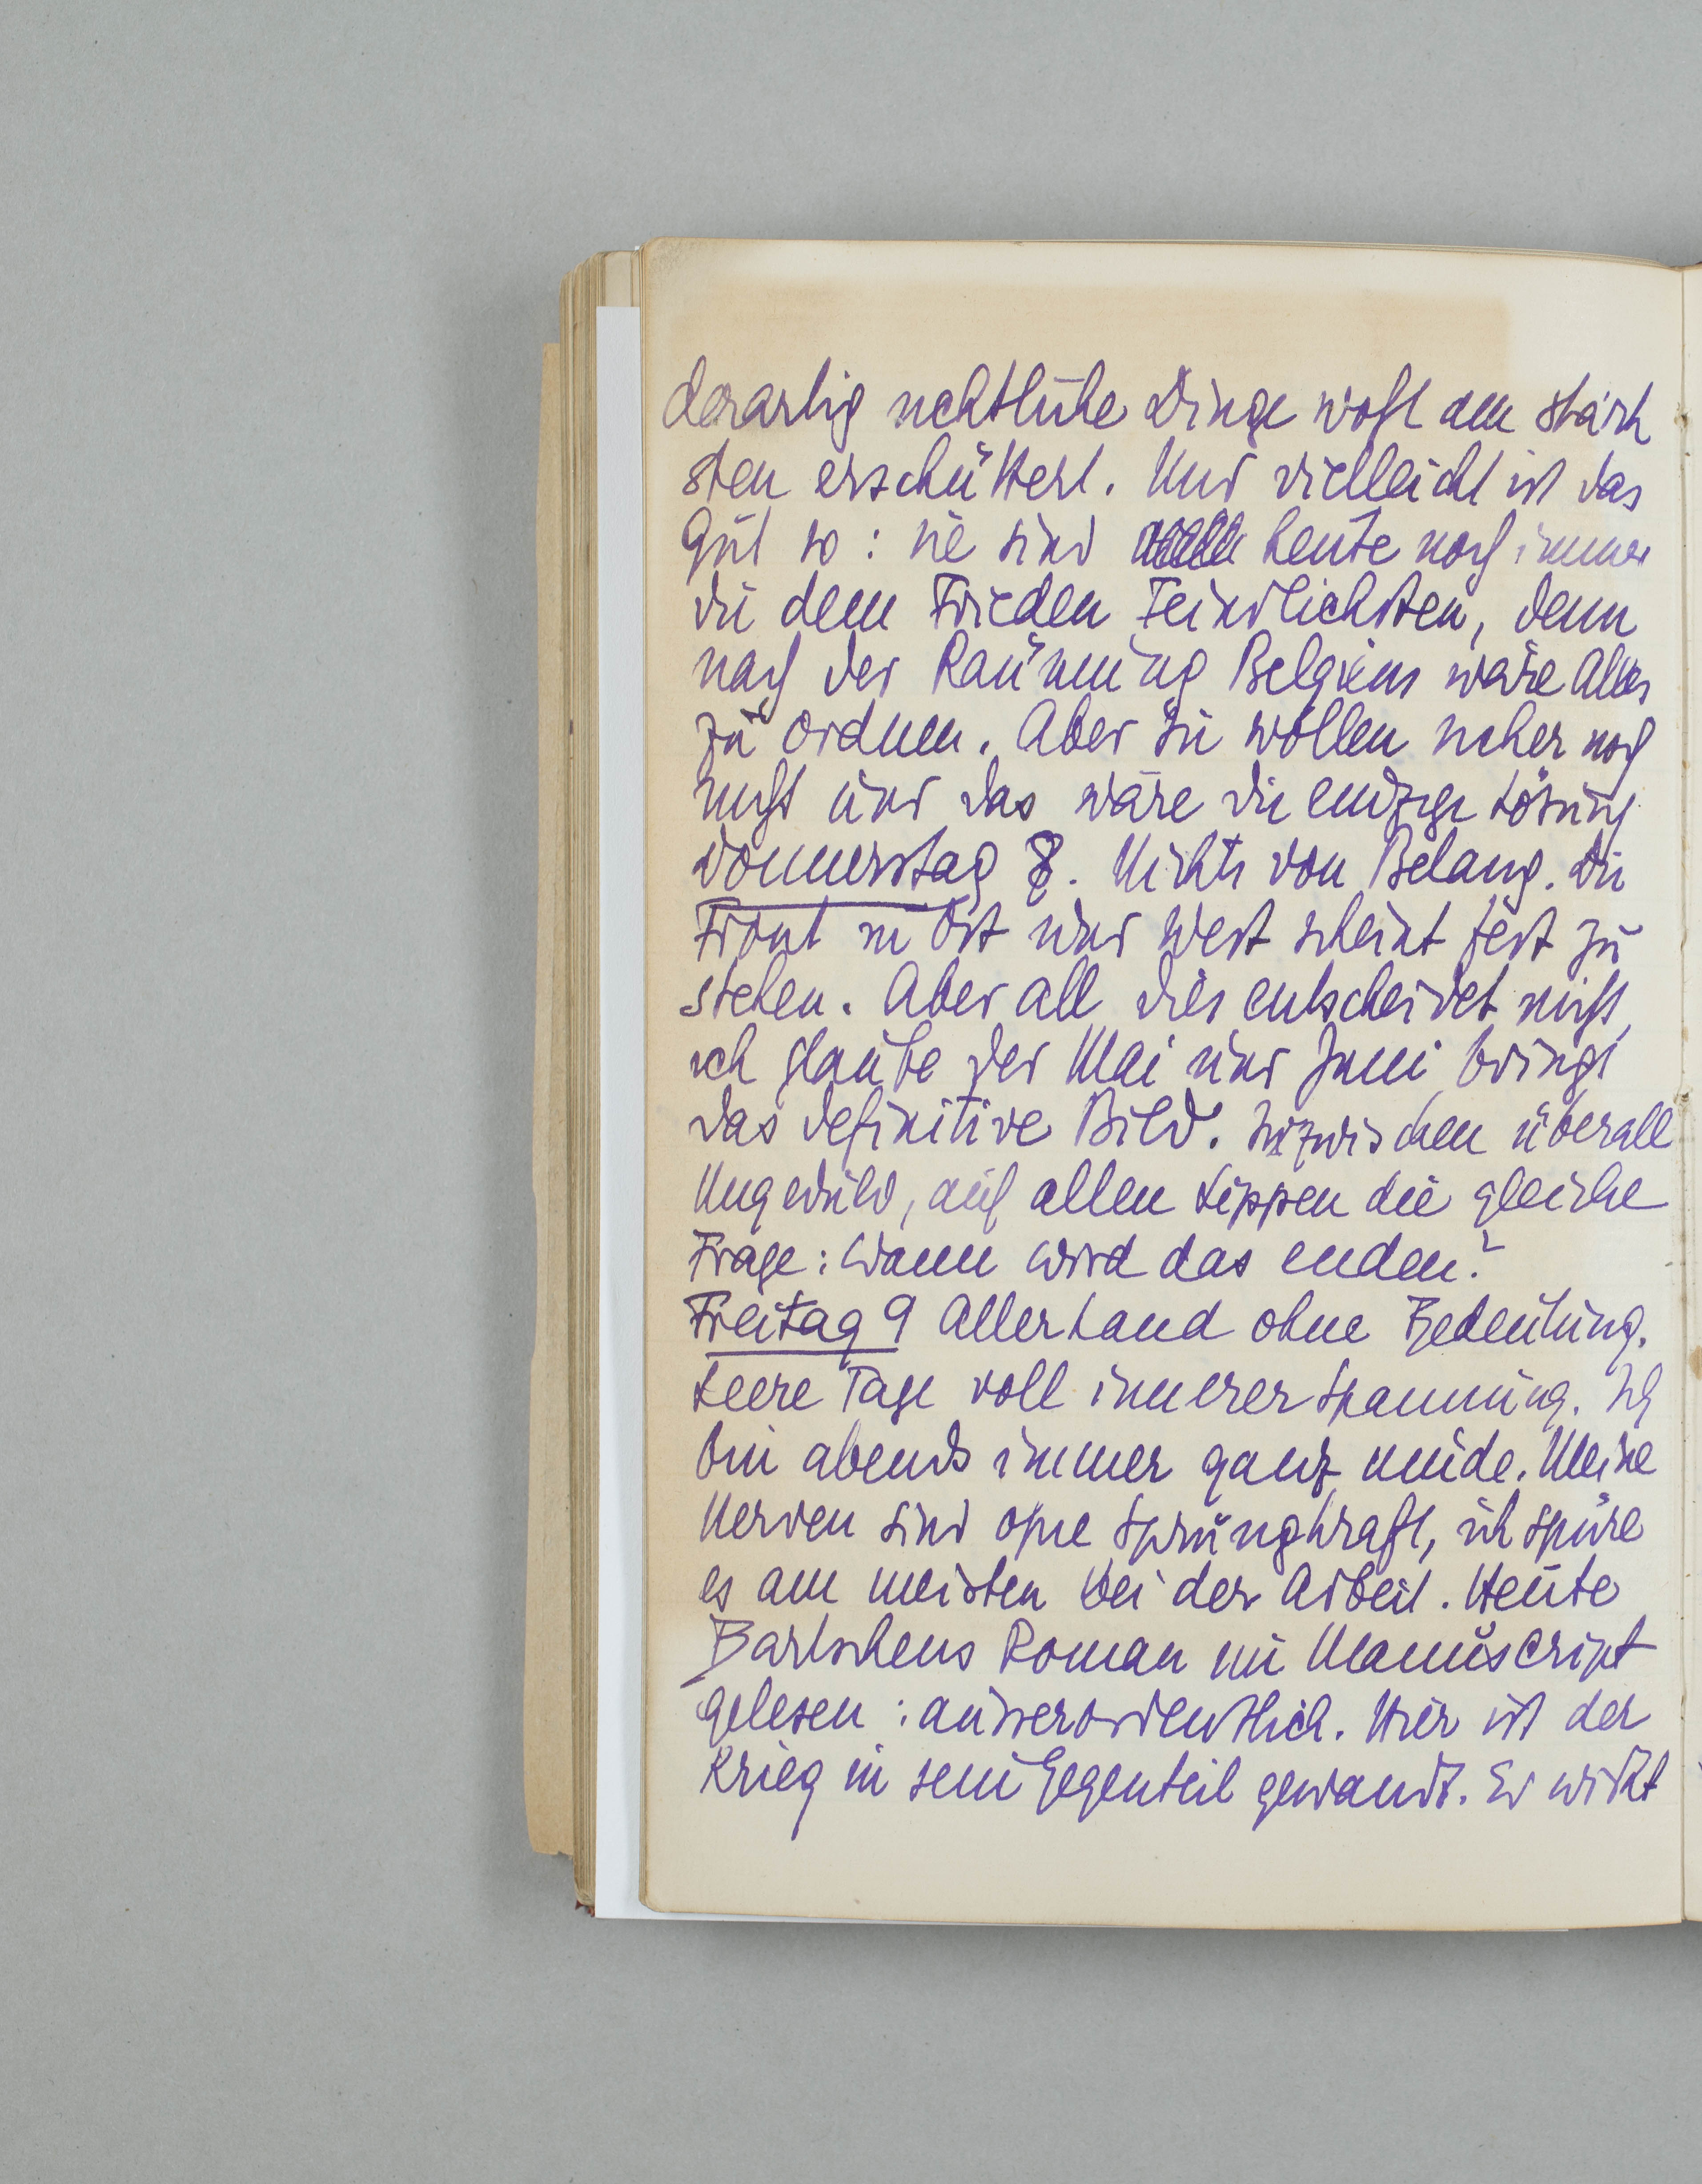 derartig rechtliche Dinge wohl am stärk
sten erschüttert. Und vielleicht ist das
gut so: sie sind heute noch immer
die dem Frieden Feindlichsten, denn
nach der Räumung Belgiens wäre Alles
zu ordnen. Aber sie wollen sicher noch
nicht und das wäre die einzige Lösung
Donnerstag 8. Nichts von Belang. Die
Front in Ost und West scheint fest zu
stehen. Aber all dies entscheidet nicht,
ich glaube der Mai und Juni bringt
das definitive Bild. Inzwischen überall
Ungeduld, auf allen Lippen die gleiche
Frage: Wann wird das enden?
Freitag 9 Allerhand ohne Bedeutung.
Leere Tage voll innerer Spannung. Ich
bin abends immer ganz müde. Meine
Nerven sind ohne Sprungkraft, ich spüre
es am meisten bei der Arbeit. Heute
Bartschens Roman im Manuscript
gelesen: ausserordentlich. Hier ist der
Krieg in sein Gegenteil gewandt. Er wirkt